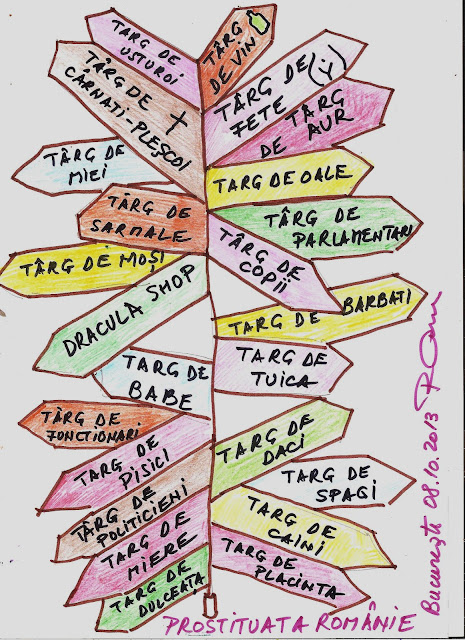 TARG DE
USTUROI
TÂRG
DE VIN
TÂRG DE
CÂRNATI-PLEȘCOI
TÂRG DE
FETE
TÂRG
DE AUR
TÂRG DE
MIEI
TARG DE OALE
TÂRG DE
SARMALE
TÂRG DE
PARLAMENTARI
TÂRG DE MOȘI
TÂRG DE
COPII
DRACULA SHOP
TARG DE BARBATI
TARG DE
BABE
TARG DE
TUICA
TÂRG DE
FONCTIONARI
TARG DE
DACI
TARG DE
PISICI
TARG DE
SPAGI
TÂRG DE
POLITICIENI
TARG DE
CAINI
TARG DE
MIERE
TARG DE
PLACINTA
TARG DE
DULCEAȚA
PROSTITUATA ROMÂNIE
București 08.10.2013